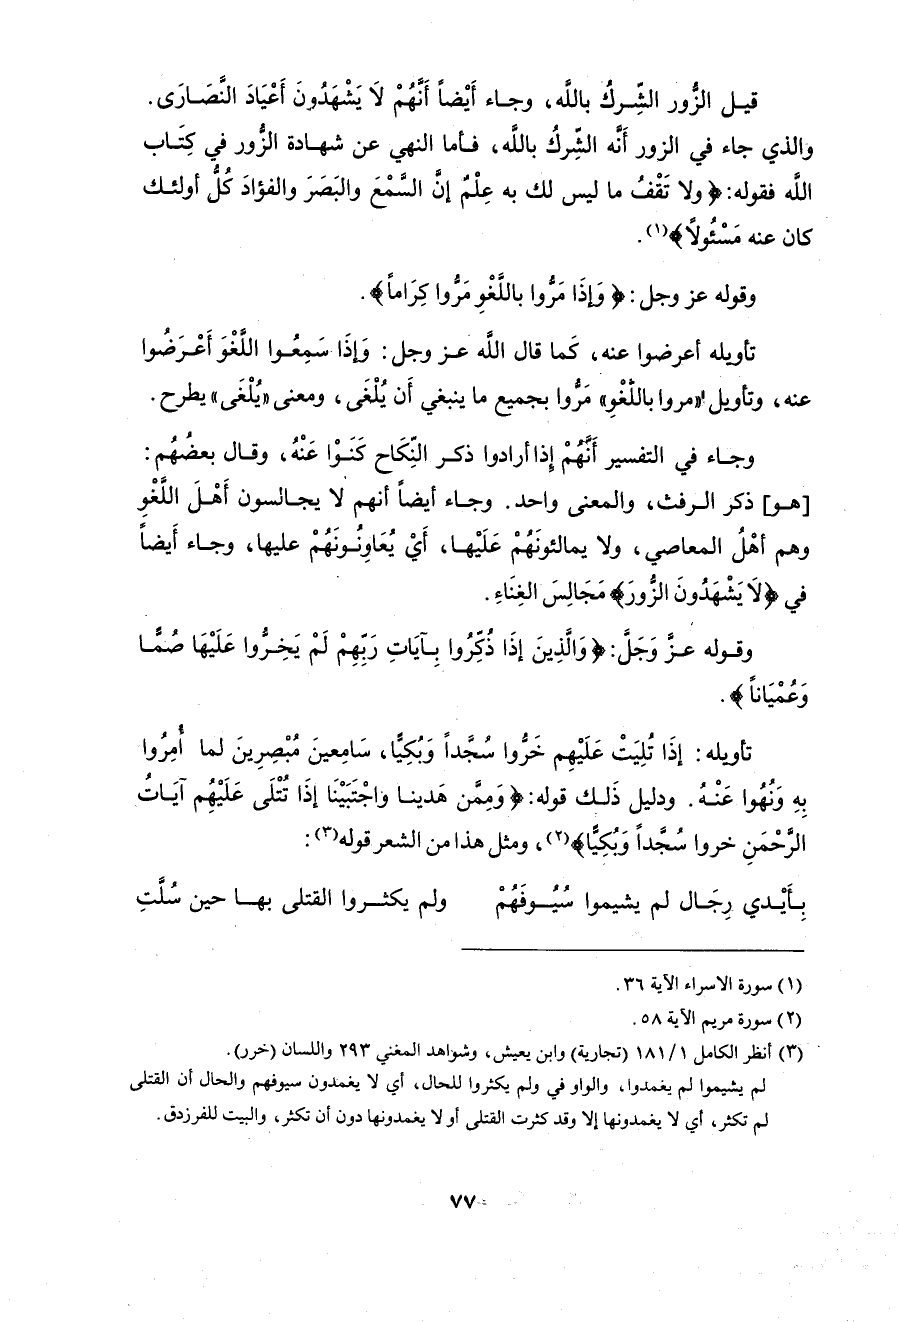 قيل الزُّور الشِّركُ باللَّه، وجاء أَيْضاً أَنَّهُمْ لَا يَشْهَدُونَ أَعْيَادَ النَّصَارَى.
والذي جاء في الزور أَنَّه الشِّركُ باللَّه، فأما النهي عن شهادة الزُّور في كِتَاب
اللَّه فقوله: ﴿ولا تَقْفُ ما ليس لك به عِلْمٌ إنَّ السَّمْعَ والبَصَرَ والفؤادَ كُلُّ أولئك
كان عنه مَسْئُولاً﴾(١).
وقوله عز وجل: ﴿وَإذَا مَرُّوا باللَّغْوِ مَرُّوا كِرَاماً﴾.
تأويله أعرضوا عنه، كَما قال اللَّه عز وجل: وَإذَا سَمِعُوا اللَّغْوَ أَعْرَضُوا
عنه، وتأويل «مروا باللَّغْوِ» مَرُّوا بجميع ما ينبغي أَن يُلْغَى، ومعنى «يُلْغَى» يطرح.
وجاء في التفسير أَنَّهُمْ إذا أرادوا ذكر النِّكَاح كَنَوْا عَنْهُ، وقال بعضُهُم:
[هو] ذكر الرفث، والمعنى واحد. وجاء أيضاً أنهم لا يجالسون أَهْلَ اللَّغْوِ
وهم أهْلُ المعاصي، ولا يمالئونَهُمْ عَلَيْها، أَيْ يُعَاوِنُونَهُمْ عليها، وجاء أيضاً
في ﴿لَا يَشْهَدُونَ الزُّورَ﴾ مَجَالِسَ الغِنَاءِ.
وقوله عزَّ وَجَلَّ: ﴿وَالَّذِينَ إذَا ذُكِّرُوا بِآيَاتِ رَبِّهِمْ لَمْ يَخِرُّوا عَلَيْهَا صُمًّا
وَعُمْيَاناً﴾.
تأويله: إذَا تُلِيَتْ عَلَيْهِم خَرُّوا سُجَّداً وَبُكِيًّا، سَامِعينَ مُبْصِرِينَ لما أُمِرُوا
بِهِ وَنُهُوا عَنْهُ. ودليل ذَلك قوله: ﴿وَمِمَّن هَدينا وَاجْتَبَيْنَا إذَا تُتْلَى عَلَيْهُم آيَاتُ
الرَّحْمَنِ خروا سُجَّداً وَبُكِيًّا﴾(٢)، ومثل هذا من الشعر قوله(٣):
بِأَيْدي رِجَال لم يشيموا سُيُوفَهُمْ ولم يكثروا القتلى بها حين سُلَّتِ
(١) سورة الاسراء الآية ٣٦.
(٢) سورة مريم الآية ٥٨.
(٣) أنظر الكامل ١/ ١٨١ (تجارية) وابن يعيش، وشواهد المغني ٢٩٣ واللسان (خرر).
لم يشيموا لم يغمدوا، والواو في ولم يكثروا للحال، أي لا يغمدون سيوفهم والحال أن القتلى
لم تكثر، أي لا يغمدونها إلا وقد كثرت القتلى أو لا يغمدونها دون أن تكثر، والبيت للفرزدق.
٧٧